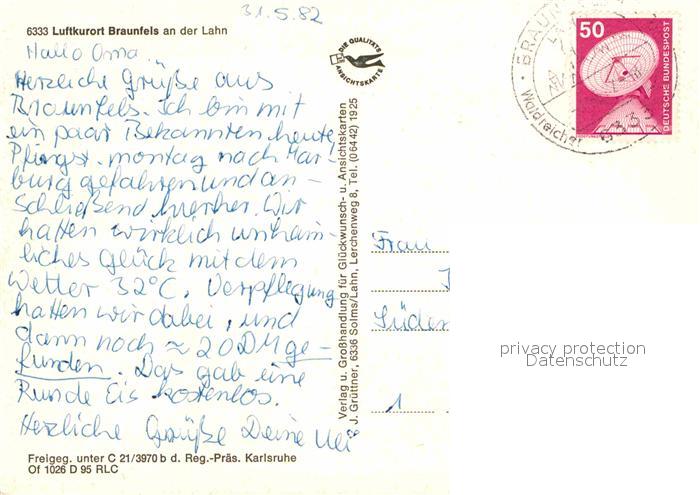 31.5.82
6333 Luftkurort Braunfels an der Lahn
Hallo Oma
Herzliche Grüße aus
Braunfels. Ich bin mit
ein paar Bekannten heute
Pfingst.montag nach Mar-
burg gefahren und an-
schließend hierher. Wir
hatten wirklich unheim-
liches Glück mit dem
Wetter 32°C. Verpflegung
hatten wir dabei, und
dann noch ≈ 20DM ge-
funden. Das gab eine
Runde Eis kostenlos.
Herzliche Grüße Deine
Freigeg. unter C 21/3970 b d. Reg.-Präs. Karlsruhe
Of 1026 D 95 RLC
DIE QUALITÄTS
ANSICHTSKARTE
Verlag u. Großhandlung für Glückwunsch- u. Ansichtskarten
J. Grüttner, 6336 Solms/Lahn, Lerchenweg 8, Tel. (06442) 1925
50
DEUTSCHE BUNDESPOST
BRAUN
Waldreicher
6333
Frau
Süden
1
privacy protection
Datenschutz